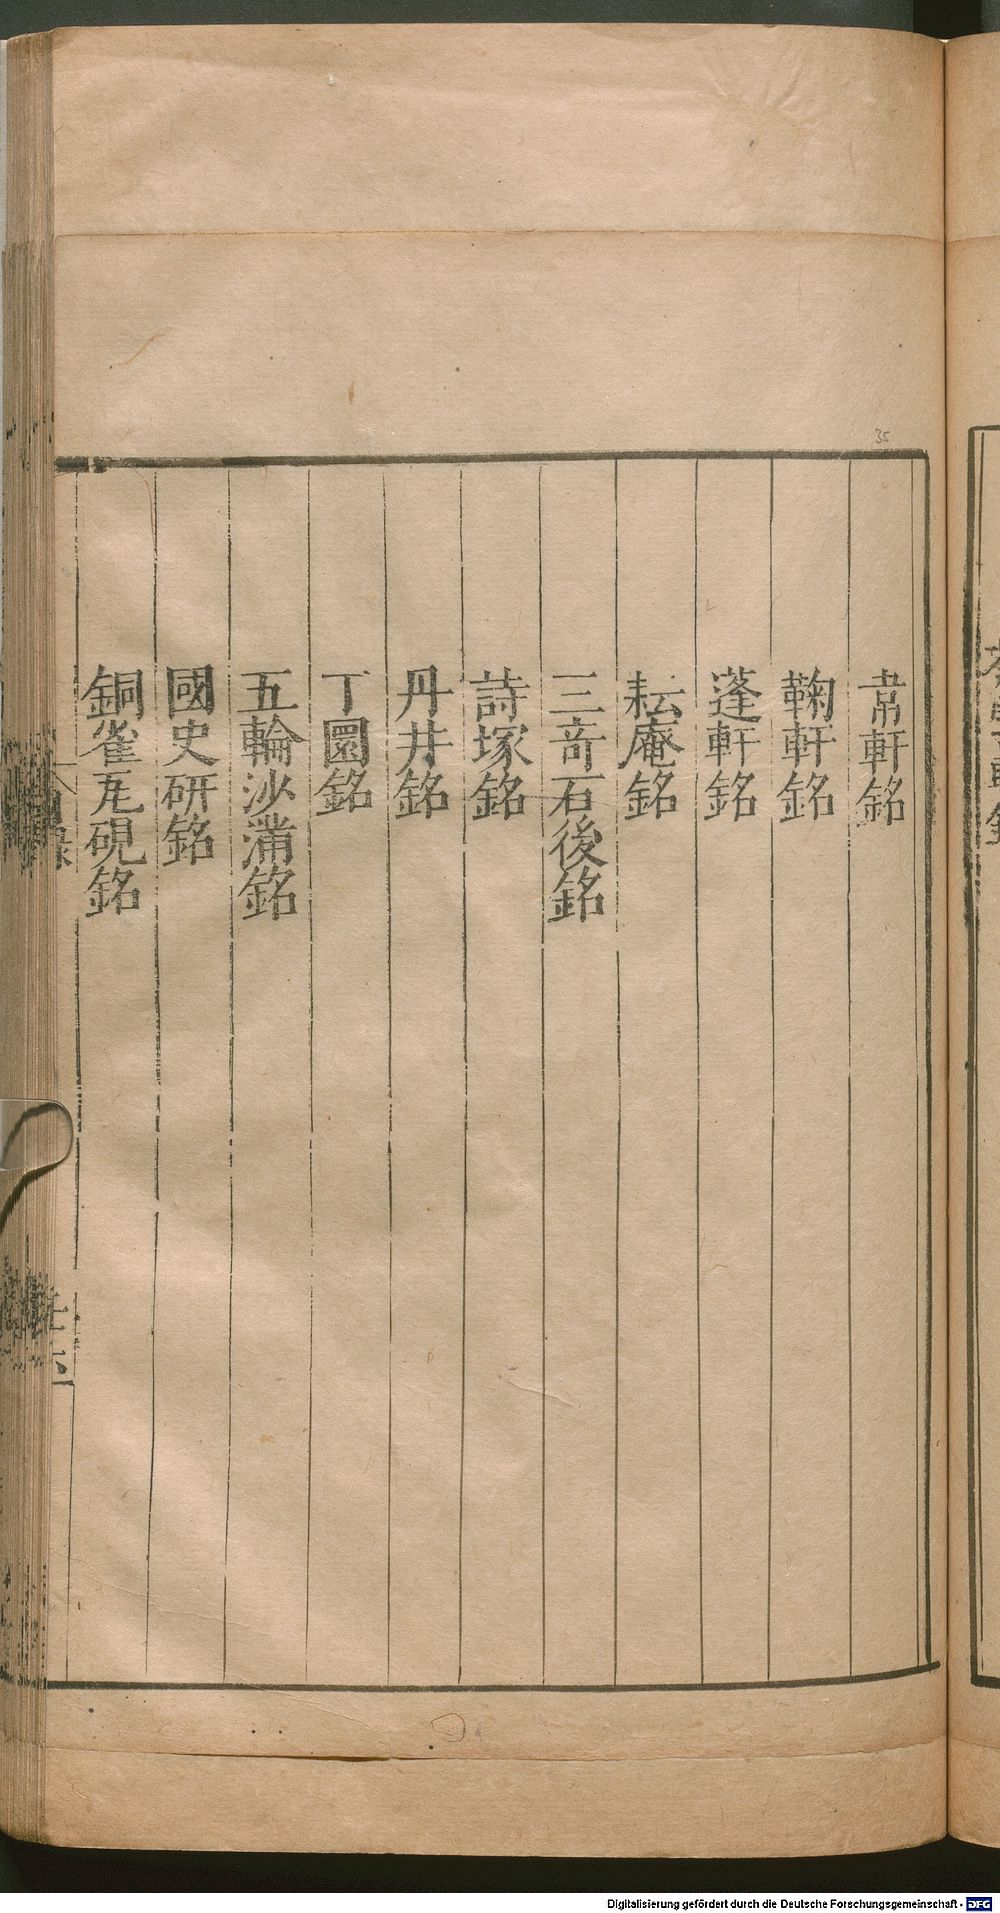 35
韋軒銘
鞠軒銘
蓬軒銘
耘庵銘
三竒石後銘
詩塚銘
丹井銘
丁園銘
五輪沙漏銘
國史硏銘
銅雀瓦硯銘
目錄
Digitalisierung gefördert durch die Deutsche Forschungsgemeinschaft - DFG